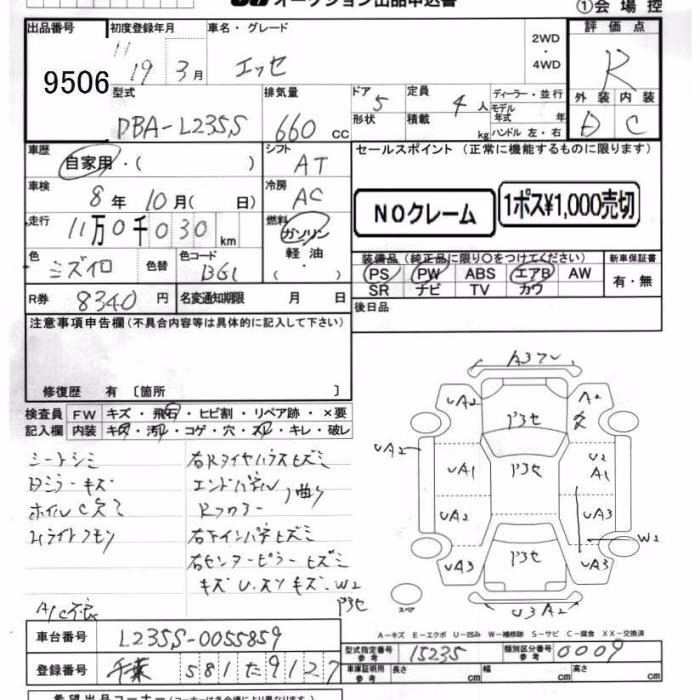 オークション出品申込書
①会場控
出品番号 初度登録年月 車名・グレード 評価点
9506 19 3月 エッセ 2WD ・ 4WD R
型式 排気量 ドア 定員 ディーラー・並行 外装 内装
DBA-L235S 660 CC 5 4人 モデル年式 年 D C
形状 積載 kg ハンドル 左・右
車歴 シフト セールスポイント (正常に機能するものに限ります)
自家用・( ) AT
車検 冷房
8年 10月( 日) AC NOクレーム 1ポス¥1,000売切
走行 燃料
11万0千030km ガソリン 軽油 ・( )
色 色替 色コード 装備品 (純正品に限り○をつけてください) 新車保証書
ミズイロ B61 PS PW ABS エアB AW 有・無
SR ナビ TV カワ
R券 8340円 名変通知期限 月 日 後日品
注意事項申告欄 (不具合内容等は具体的に記入して下さい)
修復歴 有 〔箇所 〕
検査員 FW キズ・飛石・ヒビ割・リペア跡・×要
記入欄 内装 キズ・汚レ・コゲ・穴・スレ・キレ・破レ
シートシミ 右Rタイヤハウスヒズミ
Dミラーキズ エンドパネル 曲り
Rフロアー
右センターピラーヒズミ
A/C不良
A3
UA2 A2
UA2 UA1 U2 A1
UA2 UA3
UA3 UA3 W2
U3A2
スペア
A−キズ E−エクボ U−凹み W−補修跡 S−サビ C−腐食 XX−交換済
車台番号 L235S-0055859
型式指定番号 参考 15235 類別区分番号 参考 0009
登録番号 千葉 581 た 9127
車庫証明用 参考 長さ cm 幅 cm 高さ cm
希望出品コーナー